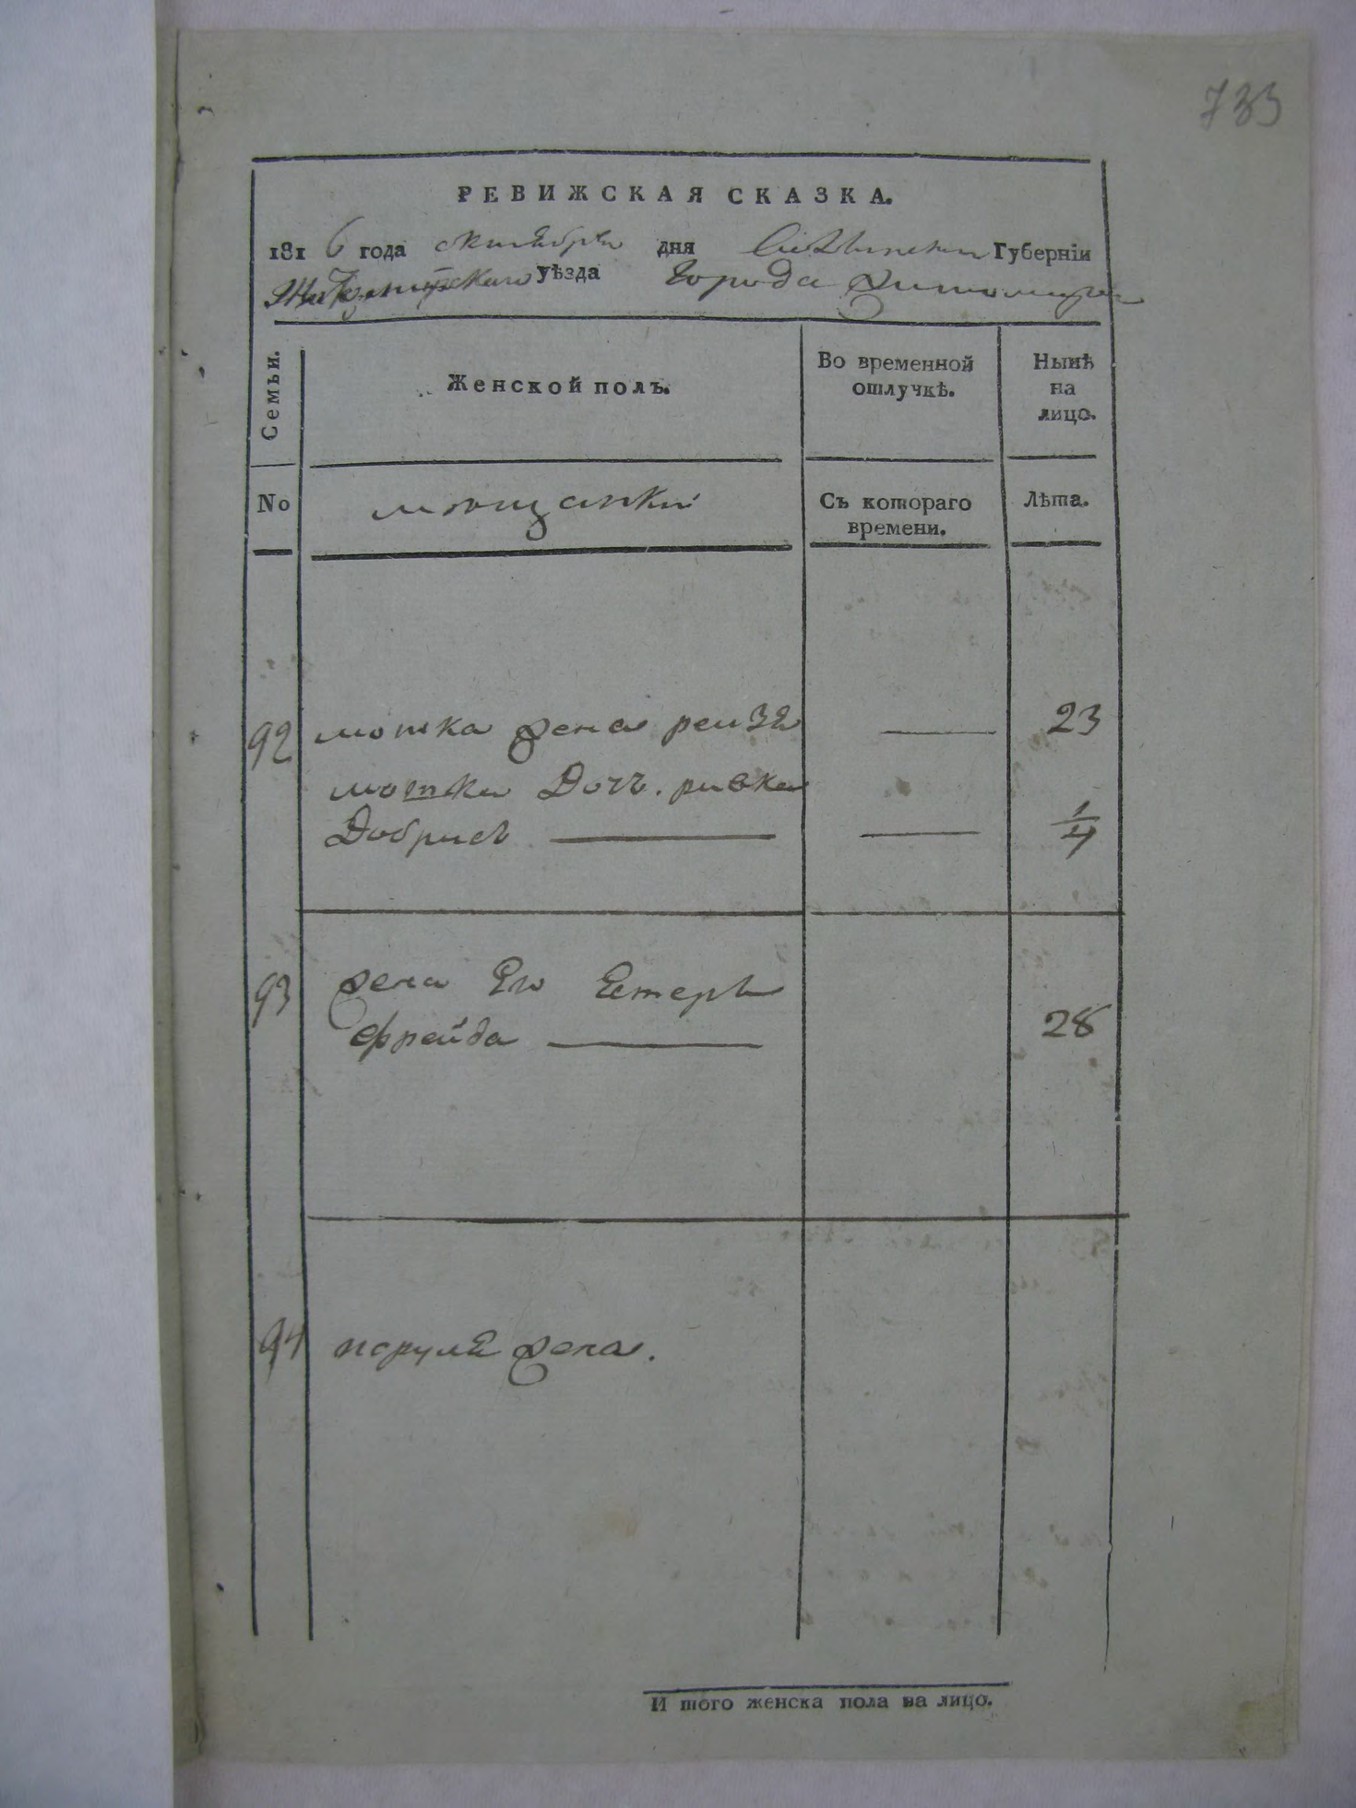 733
РЕВИЖСКАЯ СКАЗКА.
1816 года октября дня Волынской Губерніи
Житомирского уѣзда Города Житомира
Семьи. Женской полъ. Во временной отлучкѣ. Нынѣ на лицо.
No мещанки Съ котораго времени. Лѣта.
92 мошка жена рейзя — 23
мошки Дочь. ривка
Добрись — — 1/4
93 жена Его Естеръ
фрейда — 28
94 жена.
И того женска пола на лицо.